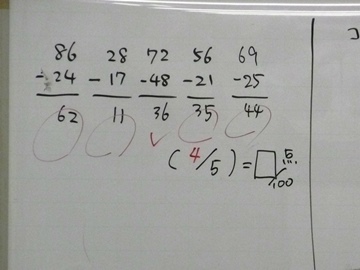 86 28 72 56 69
-24 -17 -48 -21 -25
62 11 36 35 44
(4/5) = □
/100